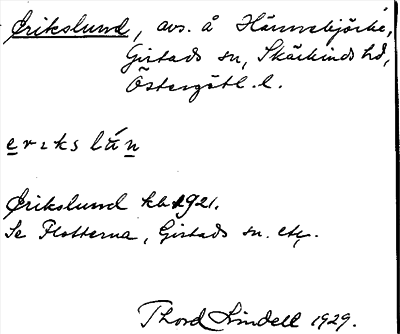 Erikslund, avs. å Hännebjörke,
Gistads sn, Skärkinds hd,
Östergötl. l.
erıks lún
Erikslund kb 1921.
Se Flotterna, Gistads sn. etc.
Thord Lindell 1929.